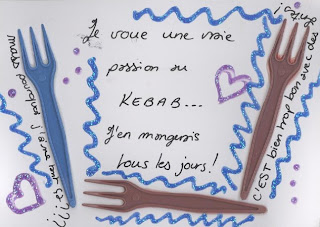 Je voue une vraie
passion au
KEBAB...
J'en mangerais
tous les jours!
C'EST bien trop bon avec des
pourquoi j'aime